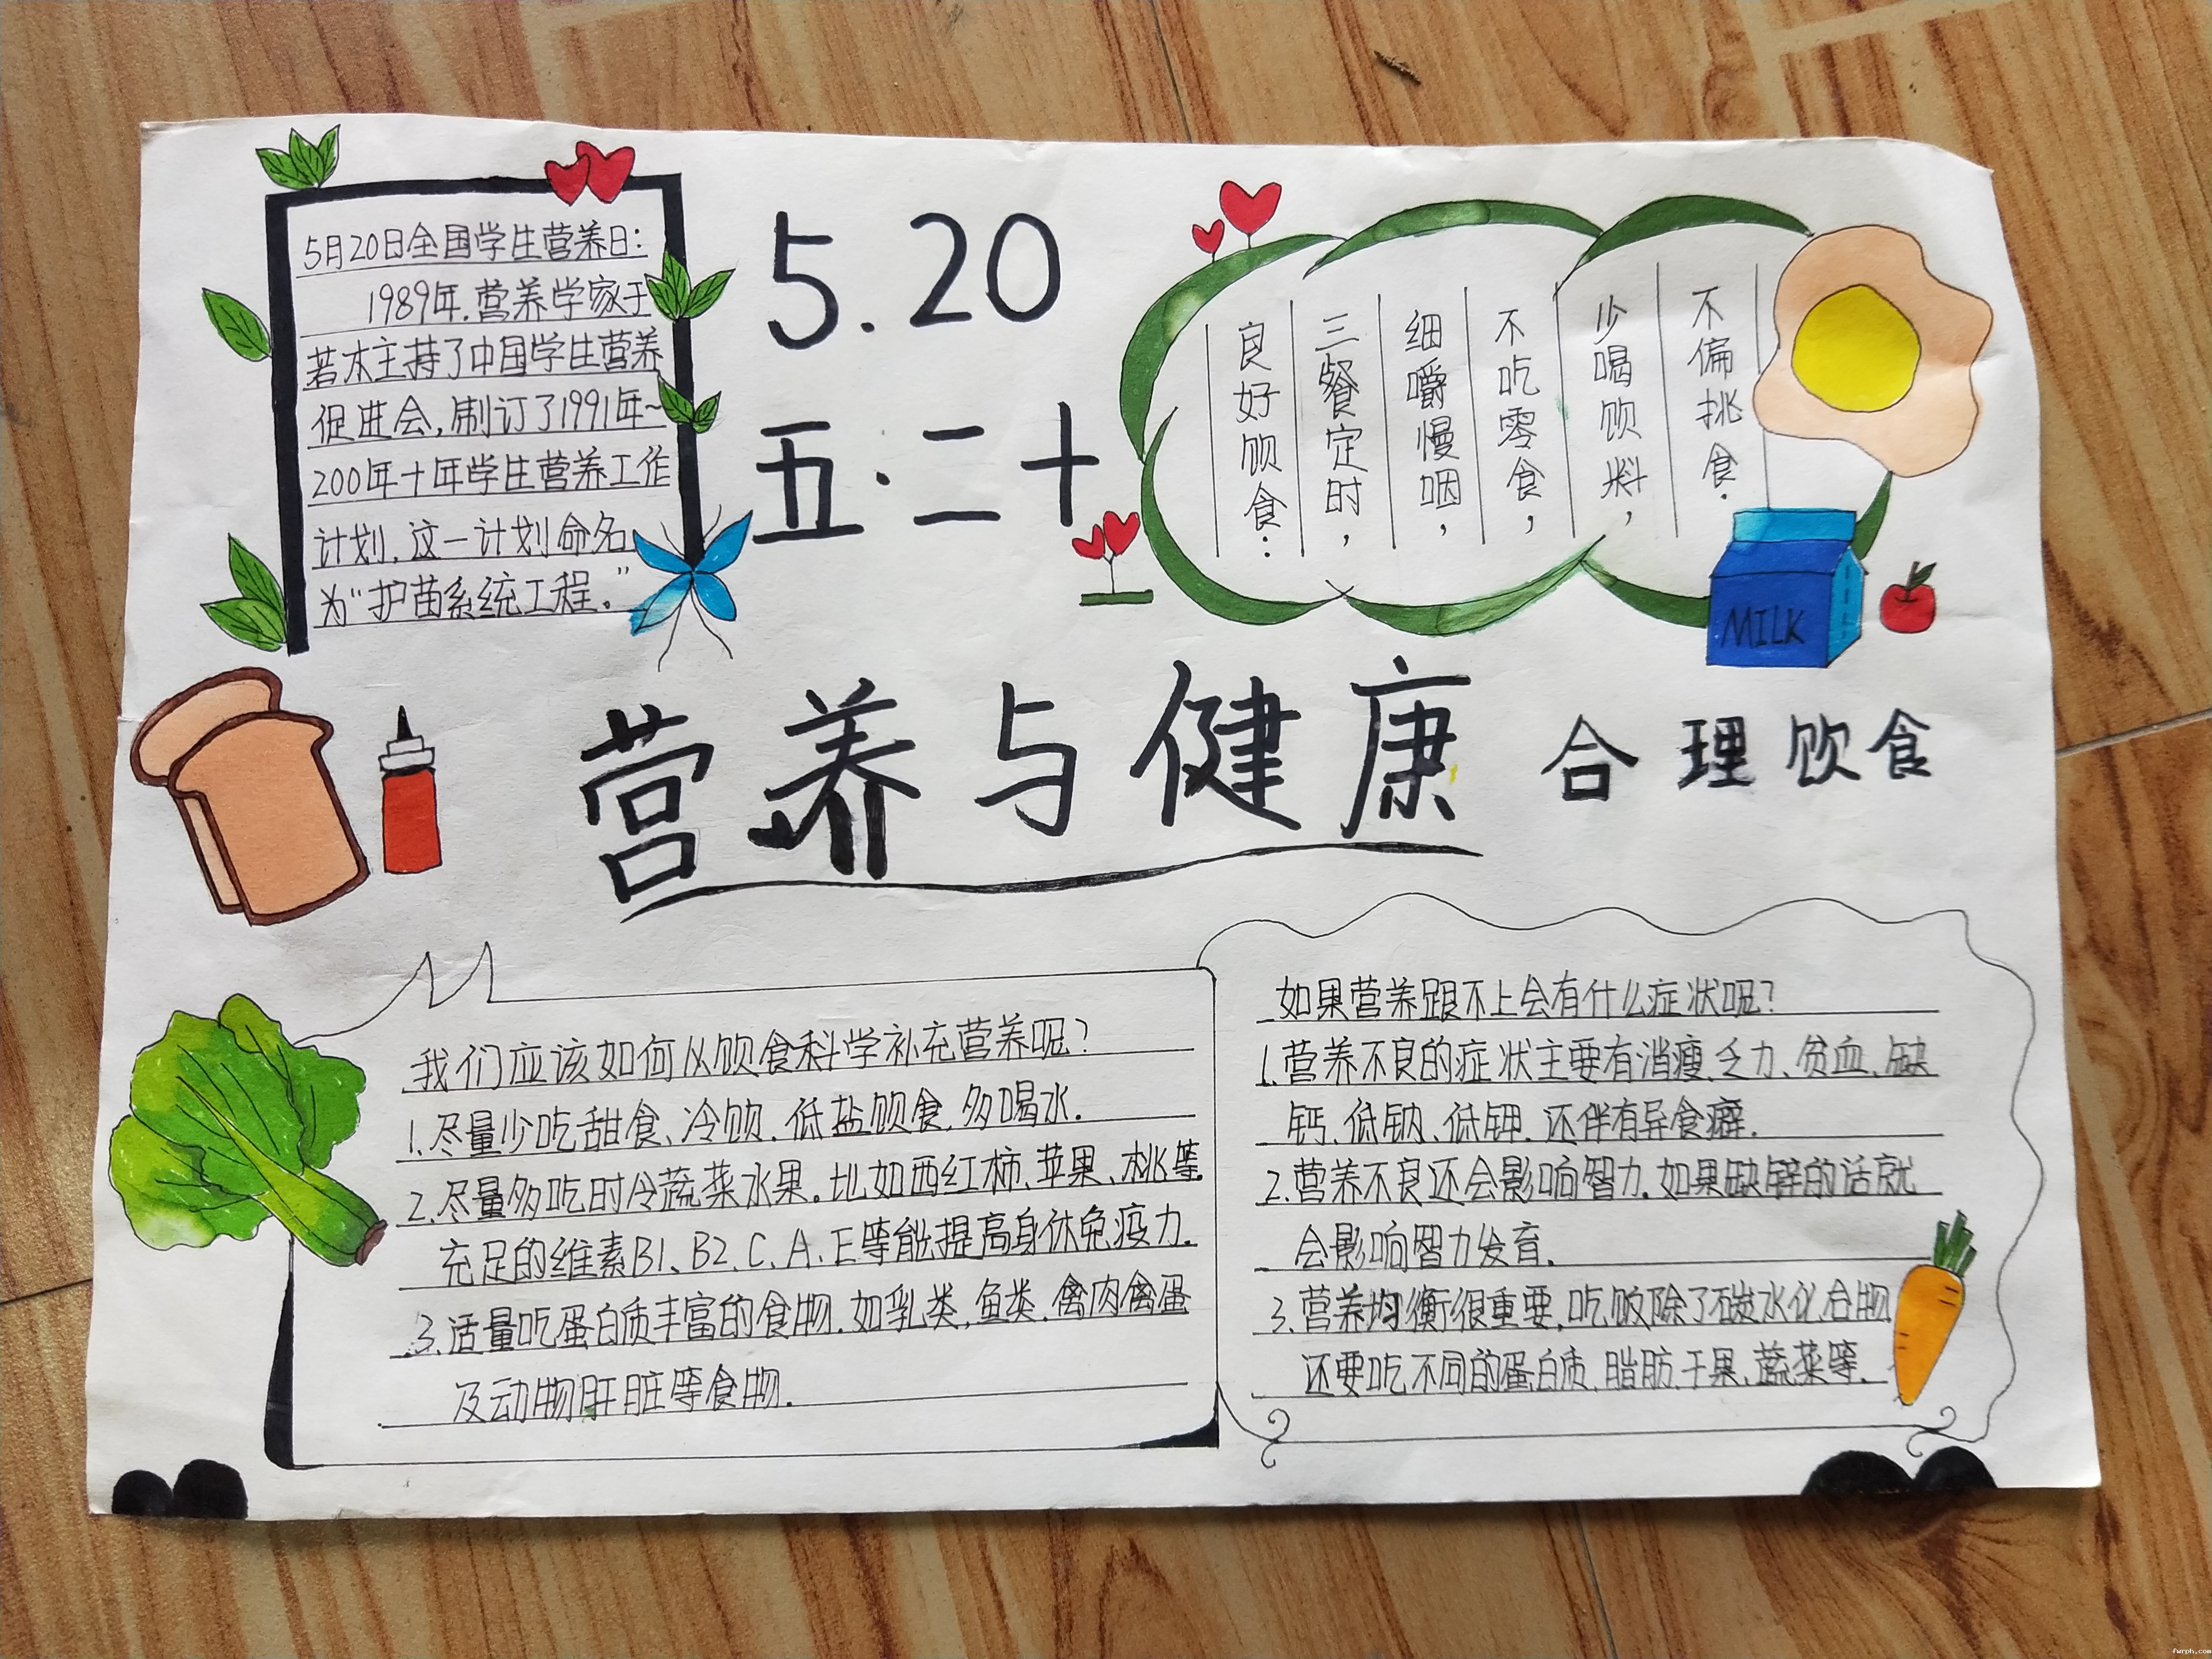 5月20日全国学生营养日:
1989年.营养学家于
若木主持了中国学生营养
促进会,制订了1991年~
200年十年学生营养工作
计划.这一计划命名
为“护苗系统工程.”
5.20
五.二十
良好饮食:
三餐定时,
细嚼慢咽,
不吃零食,
少喝饮料,
不偏挑食.
MILK
营养与健康
合理饮食
我们应该如何从饮食科学补充营养呢?
1.尽量少吃甜食、冷饮.低盐饮食.多喝水.
2.尽量多吃时令蔬菜水果.比如西红柿、苹果、桃等.
充足的维素B1、B2.C、A、E等能提高身体免疫力.
3.适量吃蛋白质丰富的食物.如乳类,鱼类.禽肉禽蛋
及动物肝脏等食物.
如果营养跟不上会有什么症状呢?
1.营养不良的症状主要有消瘦.乏力、贫血、缺
钙、低钠、低钾.还伴有异食癖.
2.营养不良还会影响智力.如果缺锌的话就
会影响智力发育.
3.营养均衡很重要,吃饭除了碳水化合物
还要吃不同的蛋白质.脂肪.干果、蔬菜等.
fwrph.com